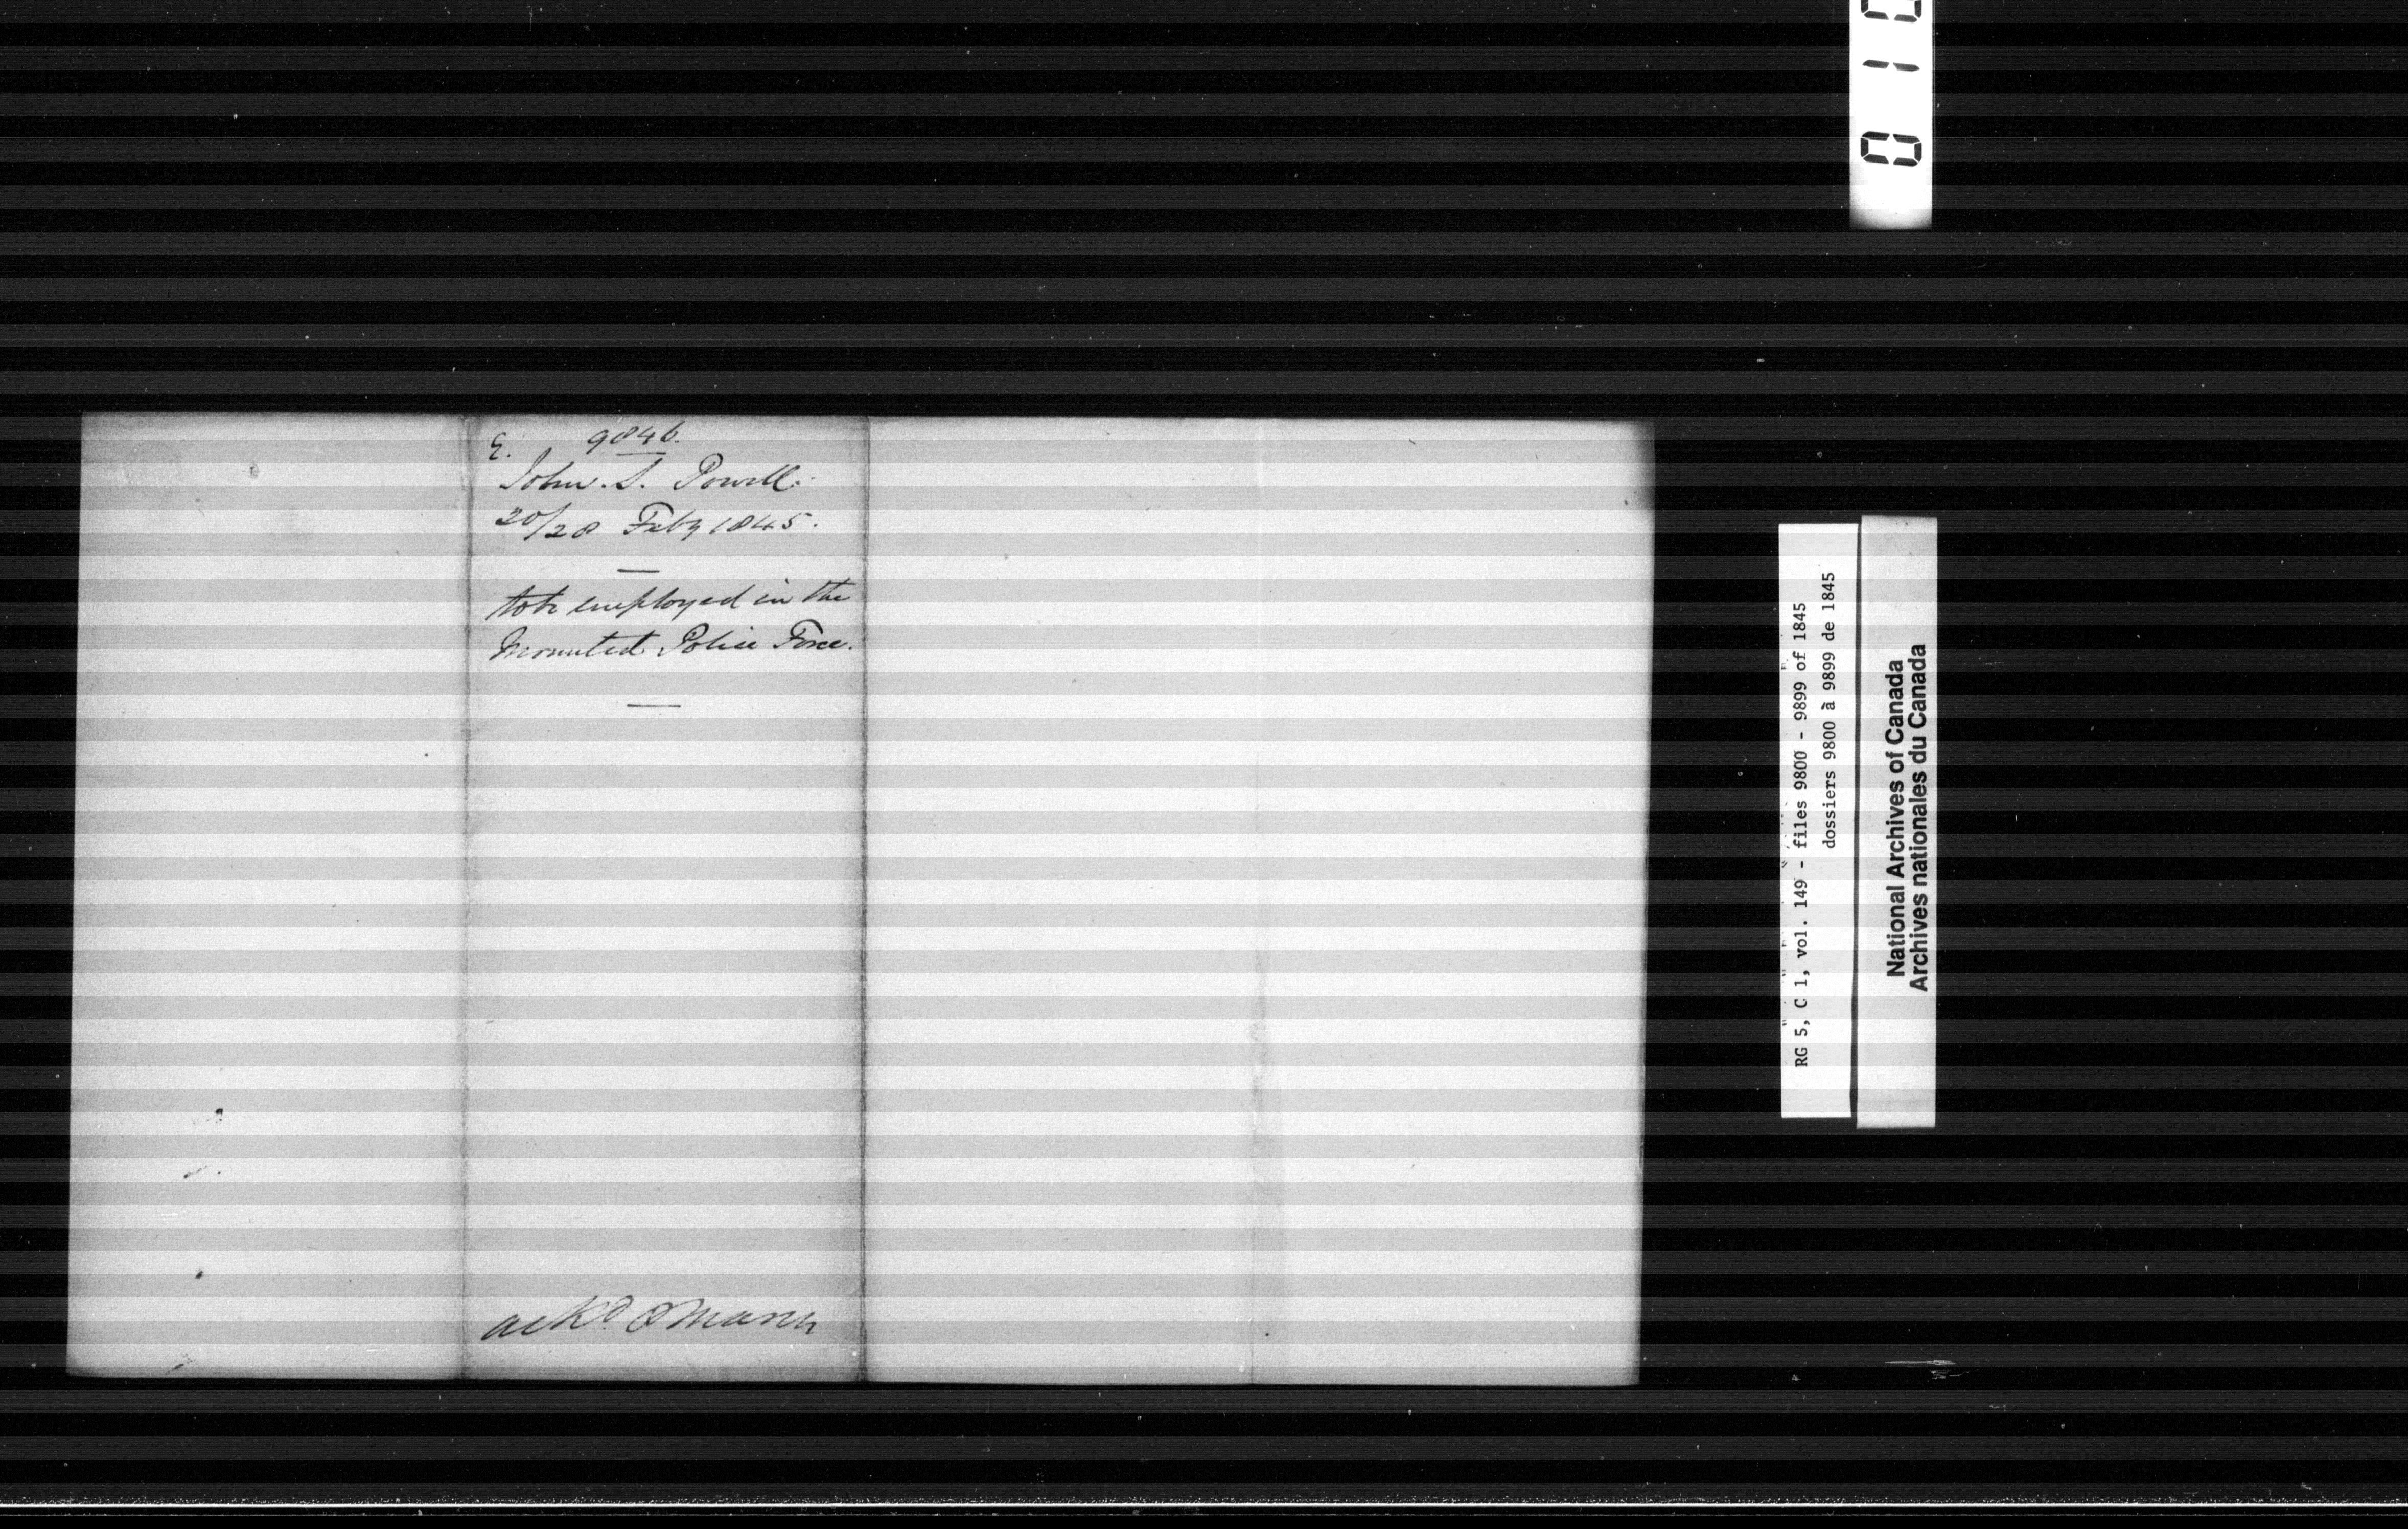 E. 9846.
John. S. Powell.
20/28 Feby 1845.
to be employed in the
Mounted Police Force.
ackd 8 March
RG 5, C 1, vol. 149 - files 9800 - 9899 of 1845
dossiers 9800 à 9899 de 1845
National Archives of Canada
Archives nationales du Canada